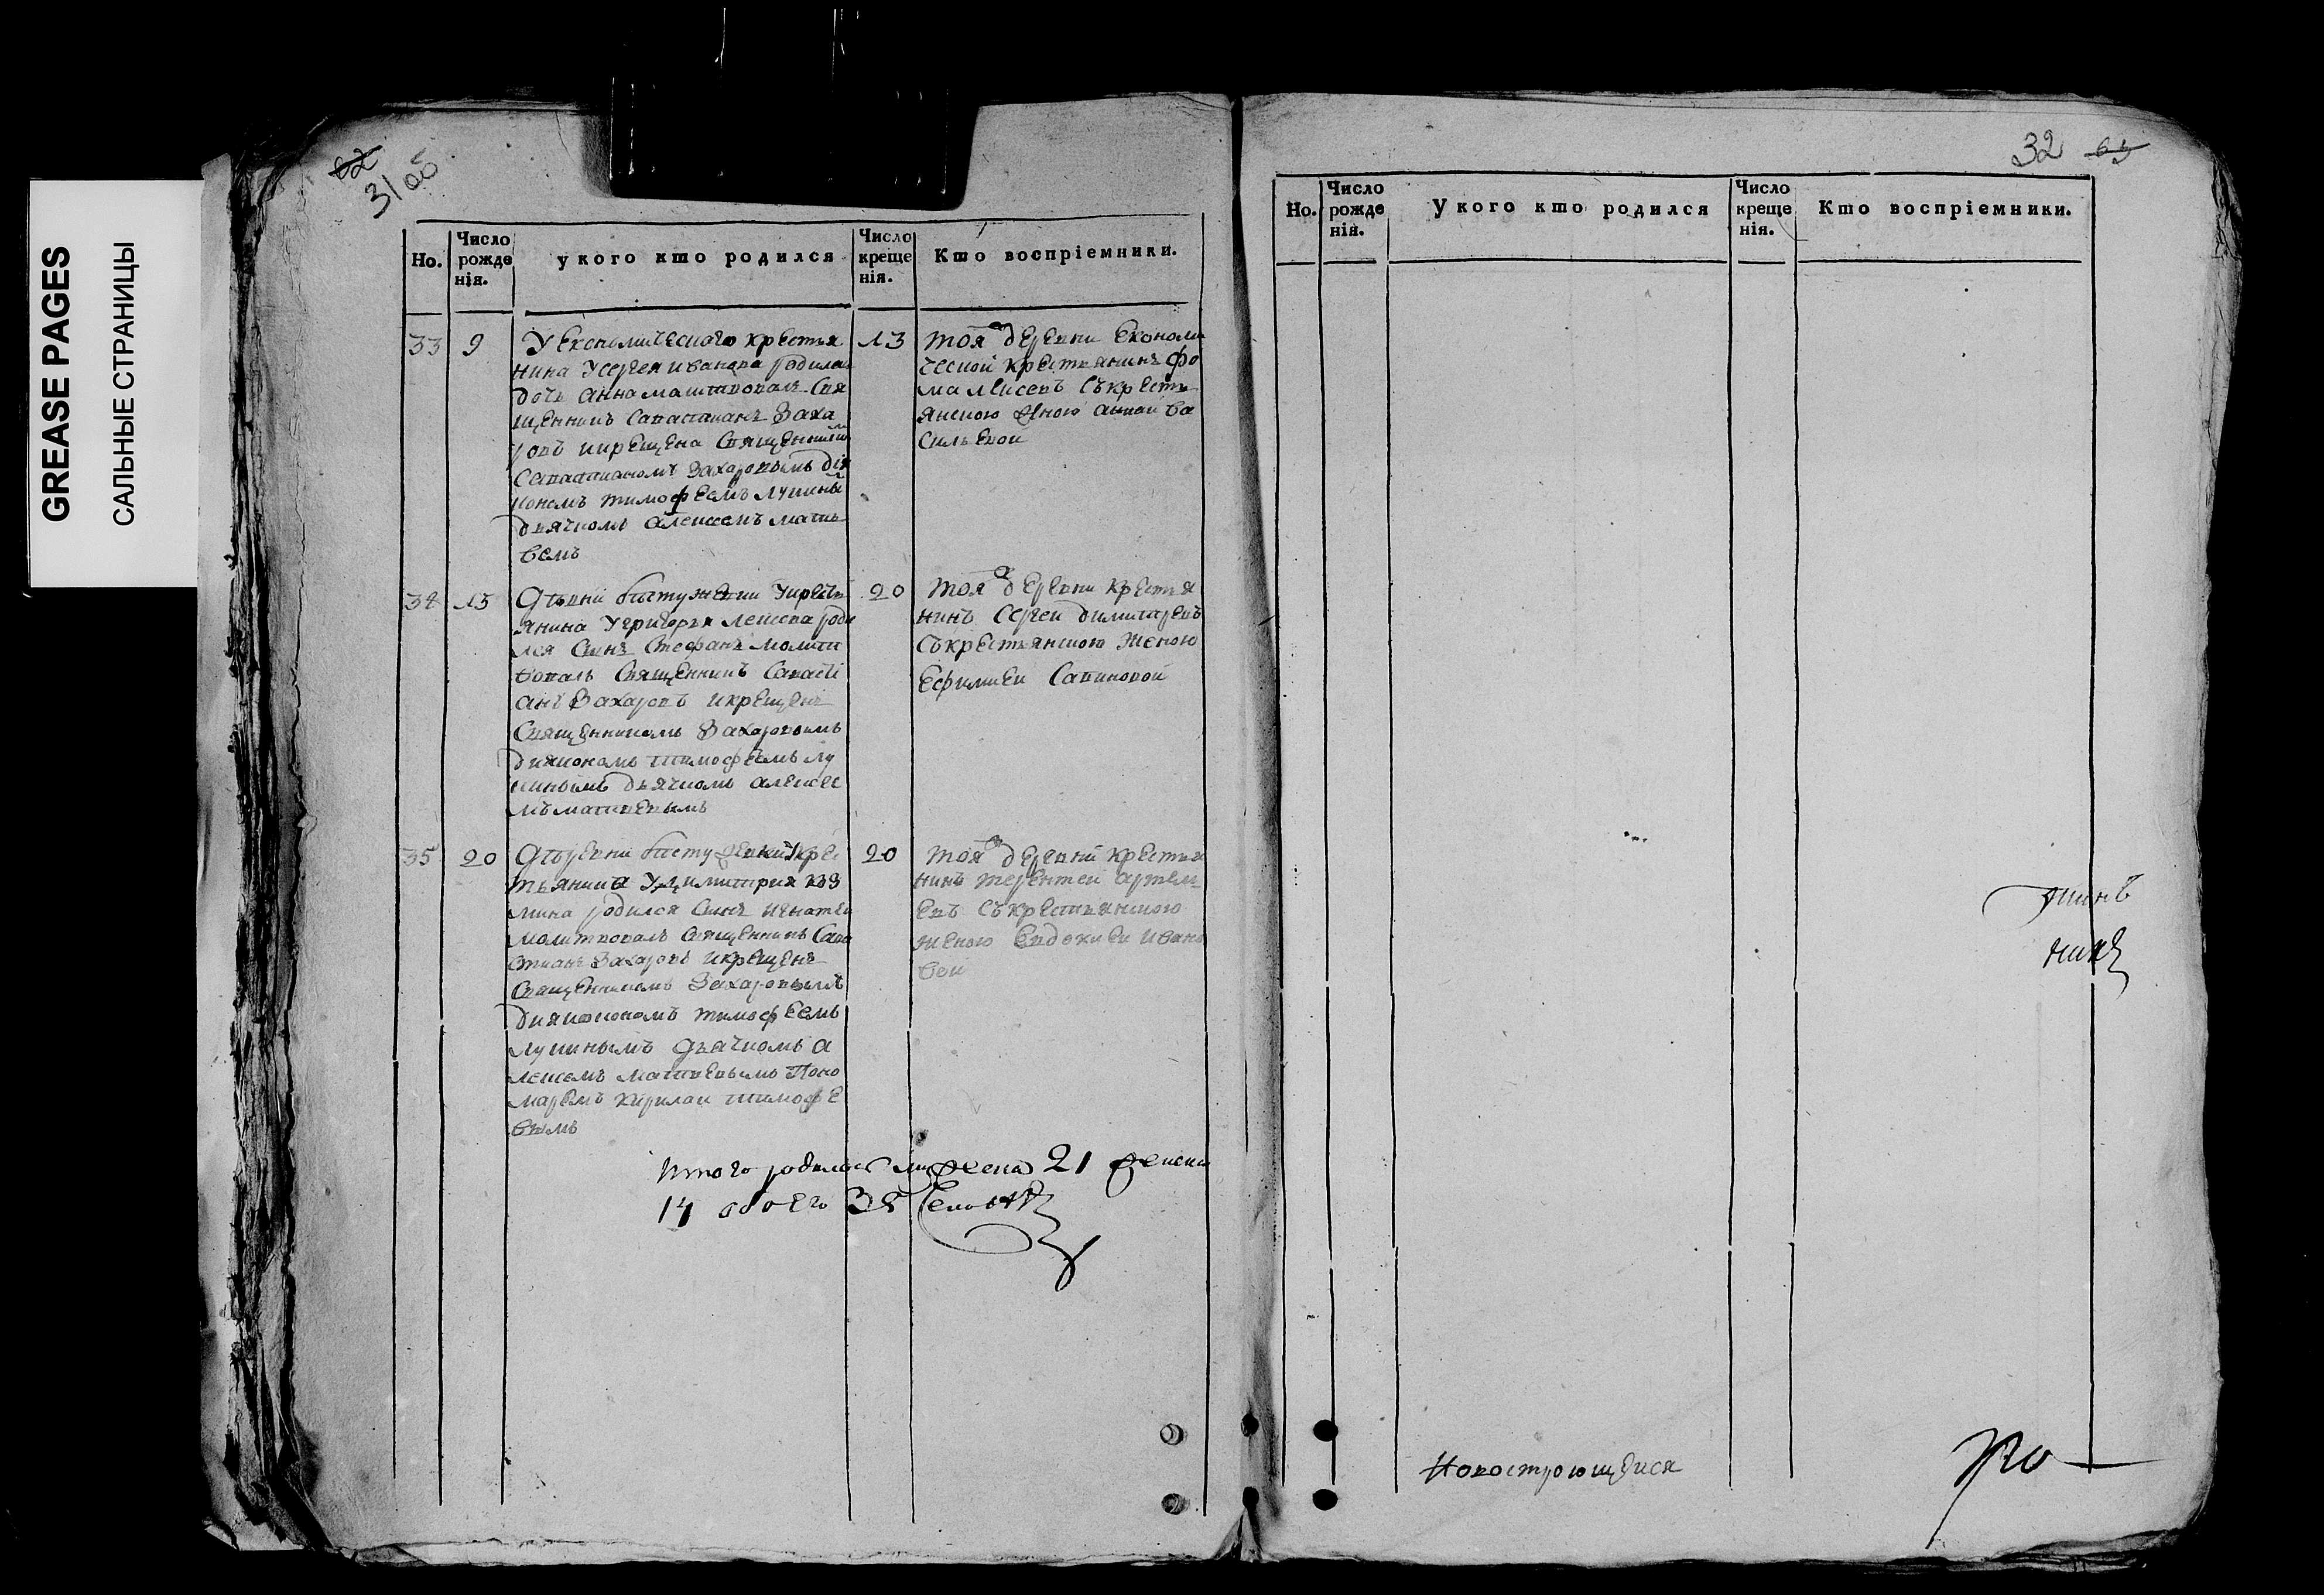 GREASE PAGES
САЛЬНЫЕ СТРАНИЦЫ
62
31 об
Но.
Число рожденія.
у кого кто родился
Число крещенія.
Кто воспріемники.
33
9
У Економическаго крестья
нина У сергея иванова родилас
дочь анна молитвовалъ свя
щенникъ савастианъ Заха
ровъ икрещена священником
савастианомъ Захаровымъ дія
кономъ тимофеемъ лукины
дьячкомъ алексеемъ матв
веемъ
13
тоя деревни Економи
ческой крестьянинъ фо
ма алексевъ съкресть
янскою женою анной ва
сильевой
34
15
укресть
янина У григорья алексева роди
лся сынъ стефанъ молитв
вовалъ священникъ савасті
анъ Захаровъ икрещенъ
священникомъ Захаровымъ
диякономъ тимофеемъ лу
кинымъ дьячкомъ алексее
мъ матвевымъ
20
тоя деревни крестья
нинъ сергей димитревъ
съкрестьянскою женою
Ефимией Савиновой
35
20
укрес
тьянина У димитрия коз
мина родился сынъ игнатей
молитвовалъ священникъ сава
стианъ Захаровъ икрещенъ
священникомъ Захаровымъ
диякономъ тимофеемъ
лукинымъ дьячкомъ а
лексемъ матвевымъ Поно
маремъ кирилай тимофе
вымъ
20
тоя деревни крестья
нинъ терентей артем
евъ съкрестьянскою
женою Евдокией ивано
вой
Итого родилось мужеска 21 женска
14 обоего 35 человекъ
32 63
Но.
Число рожденія.
У кого кто родился
Число крещенія.
Кто воспріемники.
никъ